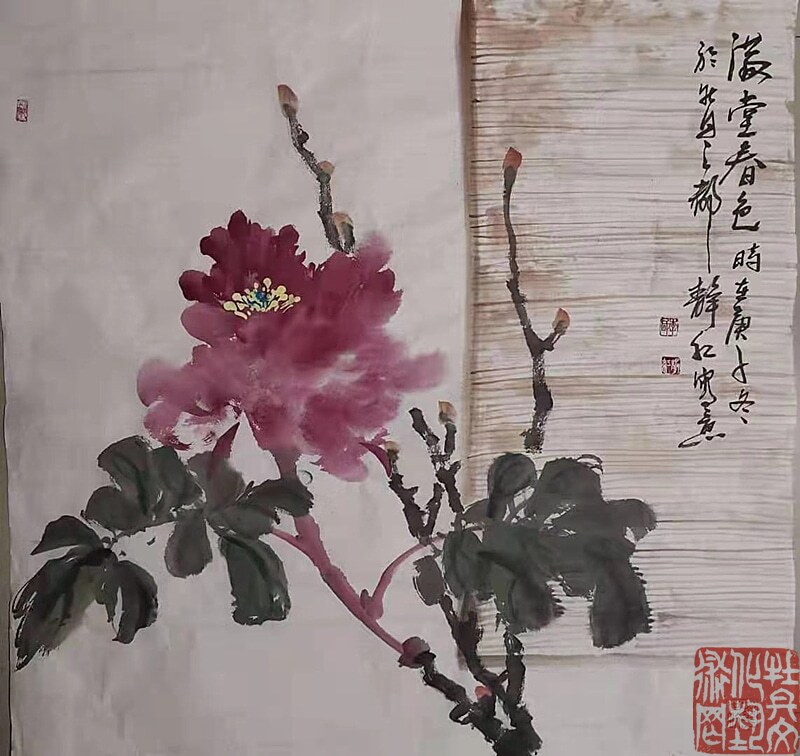 滿堂春色 時在庚子冬
於牡丹之都 靜紅寫意